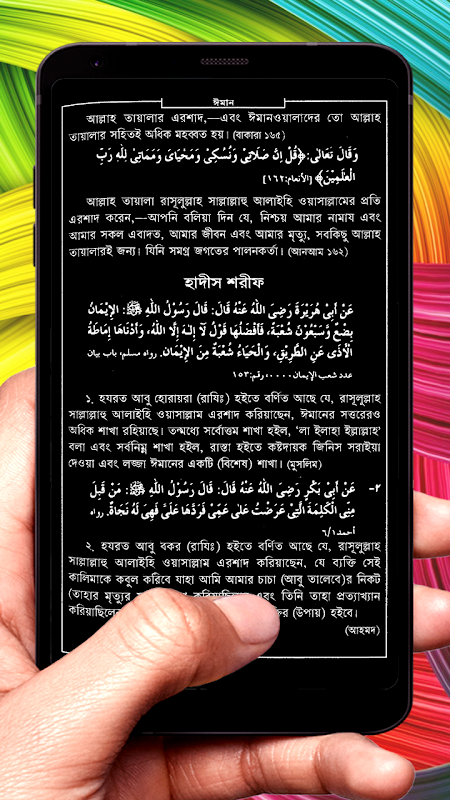 ঈমান
আল্লাহ তায়ালার এরশাদ,—এবং ঈমানওয়ালাদের তো আল্লাহ
তায়ালার সহিতই অধিক মহব্বত হয়। (বাকারা ১৬৫)
وَقَالَ تَعَالٰی: ﴿قُلْ اِنَّ صَلَاتِیْ وَنُسُکِیْ وَمَحْیَایَ وَمَمَاتِیْ لِلّٰهِ رَبِّ
الْعٰلَمِیْنَ﴾ [الأنعام:١٦٢]
আল্লাহ তায়ালা রাসূলুল্লাহ সাল্লাল্লাহু আলাইহি ওয়াসাল্লামের প্রতি
এরশাদ করেন,—আপনি বলিয়া দিন যে, নিশ্চয় আমার নামায এবং
আমার সকল এবাদত, আমার জীবন এবং আমার মৃত্যু, সবকিছু আল্লাহ
তায়ালারই জন্য। যিনি সমগ্র জগতের পালনকর্তা। (আনআম ১৬২)
হাদীস শরীফ
عَنْ أَبِیْ هُرَیْرَةَ رَضِیَ اللّٰهُ عَنْهُ قَالَ: قَالَ رَسُوْلُ اللّٰهِ ﷺ: الْإِیْمَانُ
بِضْعٌ وَّسَبْعُوْنَ شُعْبَةً، فَأَفْضَلُهَا قَوْلُ لَآ إِلٰهَ إِلَّا اللّٰهُ، وَأَدْنَاهَا إِمَاطَةُ
الْأَذٰی عَنِ الطَّرِیْقِ، وَالْحَیَاءُ شُعْبَةٌ مِنَ الْإِیْمَانِ. رواه مسلم، باب بیان
عدد شعب الإیمان....، رقم:١٥٣
১. হযরত আবু হোরায়রা (রাযিঃ) হইতে বর্ণিত আছে যে, রাসূলুল্লাহ
সাল্লাল্লাহু আলাইহি ওয়াসাল্লাম এরশাদ করিয়াছেন, ঈমানের সত্তরেরও
অধিক শাখা রহিয়াছে। তন্মধ্যে সর্বোত্তম শাখা হইল, 'লা ইলাহা ইল্লাল্লাহ'
বলা এবং সর্বনিম্ন শাখা হইল, রাস্তা হইতে কষ্টদায়ক জিনিস সরাইয়া
দেওয়া এবং লজ্জা ঈমানের একটি (বিশেষ) শাখা। (মুসলিম)
٢- عَنْ أَبِیْ بَکْرٍ رَضِیَ اللّٰهُ عَنْهُ قَالَ: قَالَ رَسُوْلُ اللّٰهِ ﷺ: مَنْ قَبِلَ
مِنِّی الْکَلِمَةَ الَّتِیْ عَرَضْتُ عَلٰی عَمِّیْ فَرَدَّهَا عَلَیَّ فَهِیَ لَهُ نَجَاةٌ. رواه
أحمد ٦/١
২. হযরত আবু বকর (রাযিঃ) হইতে বর্ণিত আছে যে, রাসূলুল্লাহ
সাল্লাল্লাহু আলাইহি ওয়াসাল্লাম এরশাদ করিয়াছেন, যে ব্যক্তি সেই
কালিমাকে কবুল করিবে যাহা আমি আমার চাচা (আবু তালেবে)র নিকট
(তাহার মৃত্যুর এবং তিনি তাহা প্রত্যাখ্যান
করিয়াছিলেন (উপায়) হইবে।
(আহমদ)